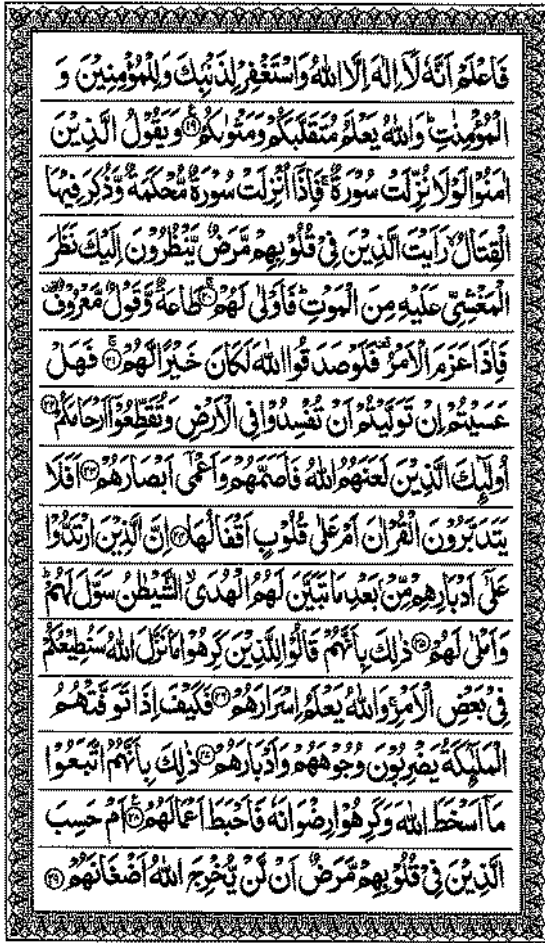 فَاعْلَمْ اَنَّهٗ لَاۤ اِلٰهَ اِلَّا اللّٰهُ وَاسْتَغْفِرْ لِذَنْۢبِكَ وَلِلْمُؤْمِنِیْنَ وَ
الْمُؤْمِنٰتِؕ وَاللّٰهُ یَعْلَمُ مُتَقَلَّبَكُمْ وَمَثْوٰىكُمْ۠ ﴿۱۹﴾ وَیَقُوْلُ الَّذِیْنَ
اٰمَنُوْا لَوْلَا نُزِّلَتْ سُوْرَةٌۚ فَاِذَاۤ اُنْزِلَتْ سُوْرَةٌ مُّحْكَمَةٌ وَّذُكِرَ فِیْهَا
الْقِتَالُۙ رَاَیْتَ الَّذِیْنَ فِیْ قُلُوْبِهِمْ مَّرَضٌ یَّنْظُرُوْنَ اِلَیْكَ نَظَرَ
الْمَغْشِیِّ عَلَیْهِ مِنَ الْمَوْتِؕ فَاَوْلٰى لَهُمْۚ ﴿۲۰﴾ طَاعَةٌ وَّقَوْلٌ مَّعْرُوْفٌ
فَاِذَا عَزَمَ الْاَمْرُ فَلَوْ صَدَقُوا اللّٰهَ لَكَانَ خَیْرًا لَّهُمْۚ ﴿۲۱﴾ فَهَلْ
عَسَیْتُمْ اِنْ تَوَلَّیْتُمْ اَنْ تُفْسِدُوْا فِی الْاَرْضِ وَتُقَطِّعُوْۤا اَرْحَامَكُمْ ﴿۲۲﴾
اُولٰٓىِٕكَ الَّذِیْنَ لَعَنَهُمُ اللّٰهُ فَاَصَمَّهُمْ وَاَعْمٰۤى اَبْصَارَهُمْ ﴿۲۳﴾ اَفَلَا
یَتَدَبَّرُوْنَ الْقُرْاٰنَ اَمْ عَلٰى قُلُوْبٍ اَقْفَالُهَا ﴿۲۴﴾ اِنَّ الَّذِیْنَ ارْتَدُّوْا
عَلٰۤى اَدْبَارِهِمْ مِّنْۢ بَعْدِ مَا تَبَیَّنَ لَهُمُ الْهُدَىۙ الشَّیْطٰنُ سَوَّلَ لَهُمْؕ
وَاَمْلٰى لَهُمْ ﴿۲۵﴾ ذٰلِكَ بِاَنَّهُمْ قَالُوْا لِلَّذِیْنَ كَرِهُوْا مَا نَزَّلَ اللّٰهُ سَنُطِیْعُكُمْ
فِیْ بَعْضِ الْاَمْرِۚ وَاللّٰهُ یَعْلَمُ اِسْرَارَهُمْ ﴿۲۶﴾ فَكَیْفَ اِذَا تَوَفَّتْهُمُ
الْمَلٰٓىِٕكَةُ یَضْرِبُوْنَ وُجُوْهَهُمْ وَاَدْبَارَهُمْ ﴿۲۷﴾ ذٰلِكَ بِاَنَّهُمُ اتَّبَعُوْا
مَاۤ اَسْخَطَ اللّٰهَ وَكَرِهُوْا رِضْوَانَهٗ فَاَحْبَطَ اَعْمَالَهُمْ۠ ﴿۲۸﴾ اَمْ حَسِبَ
الَّذِیْنَ فِیْ قُلُوْبِهِمْ مَّرَضٌ اَنْ لَّنْ یُّخْرِجَ اللّٰهُ اَضْغَانَهُمْ ﴿۲۹﴾